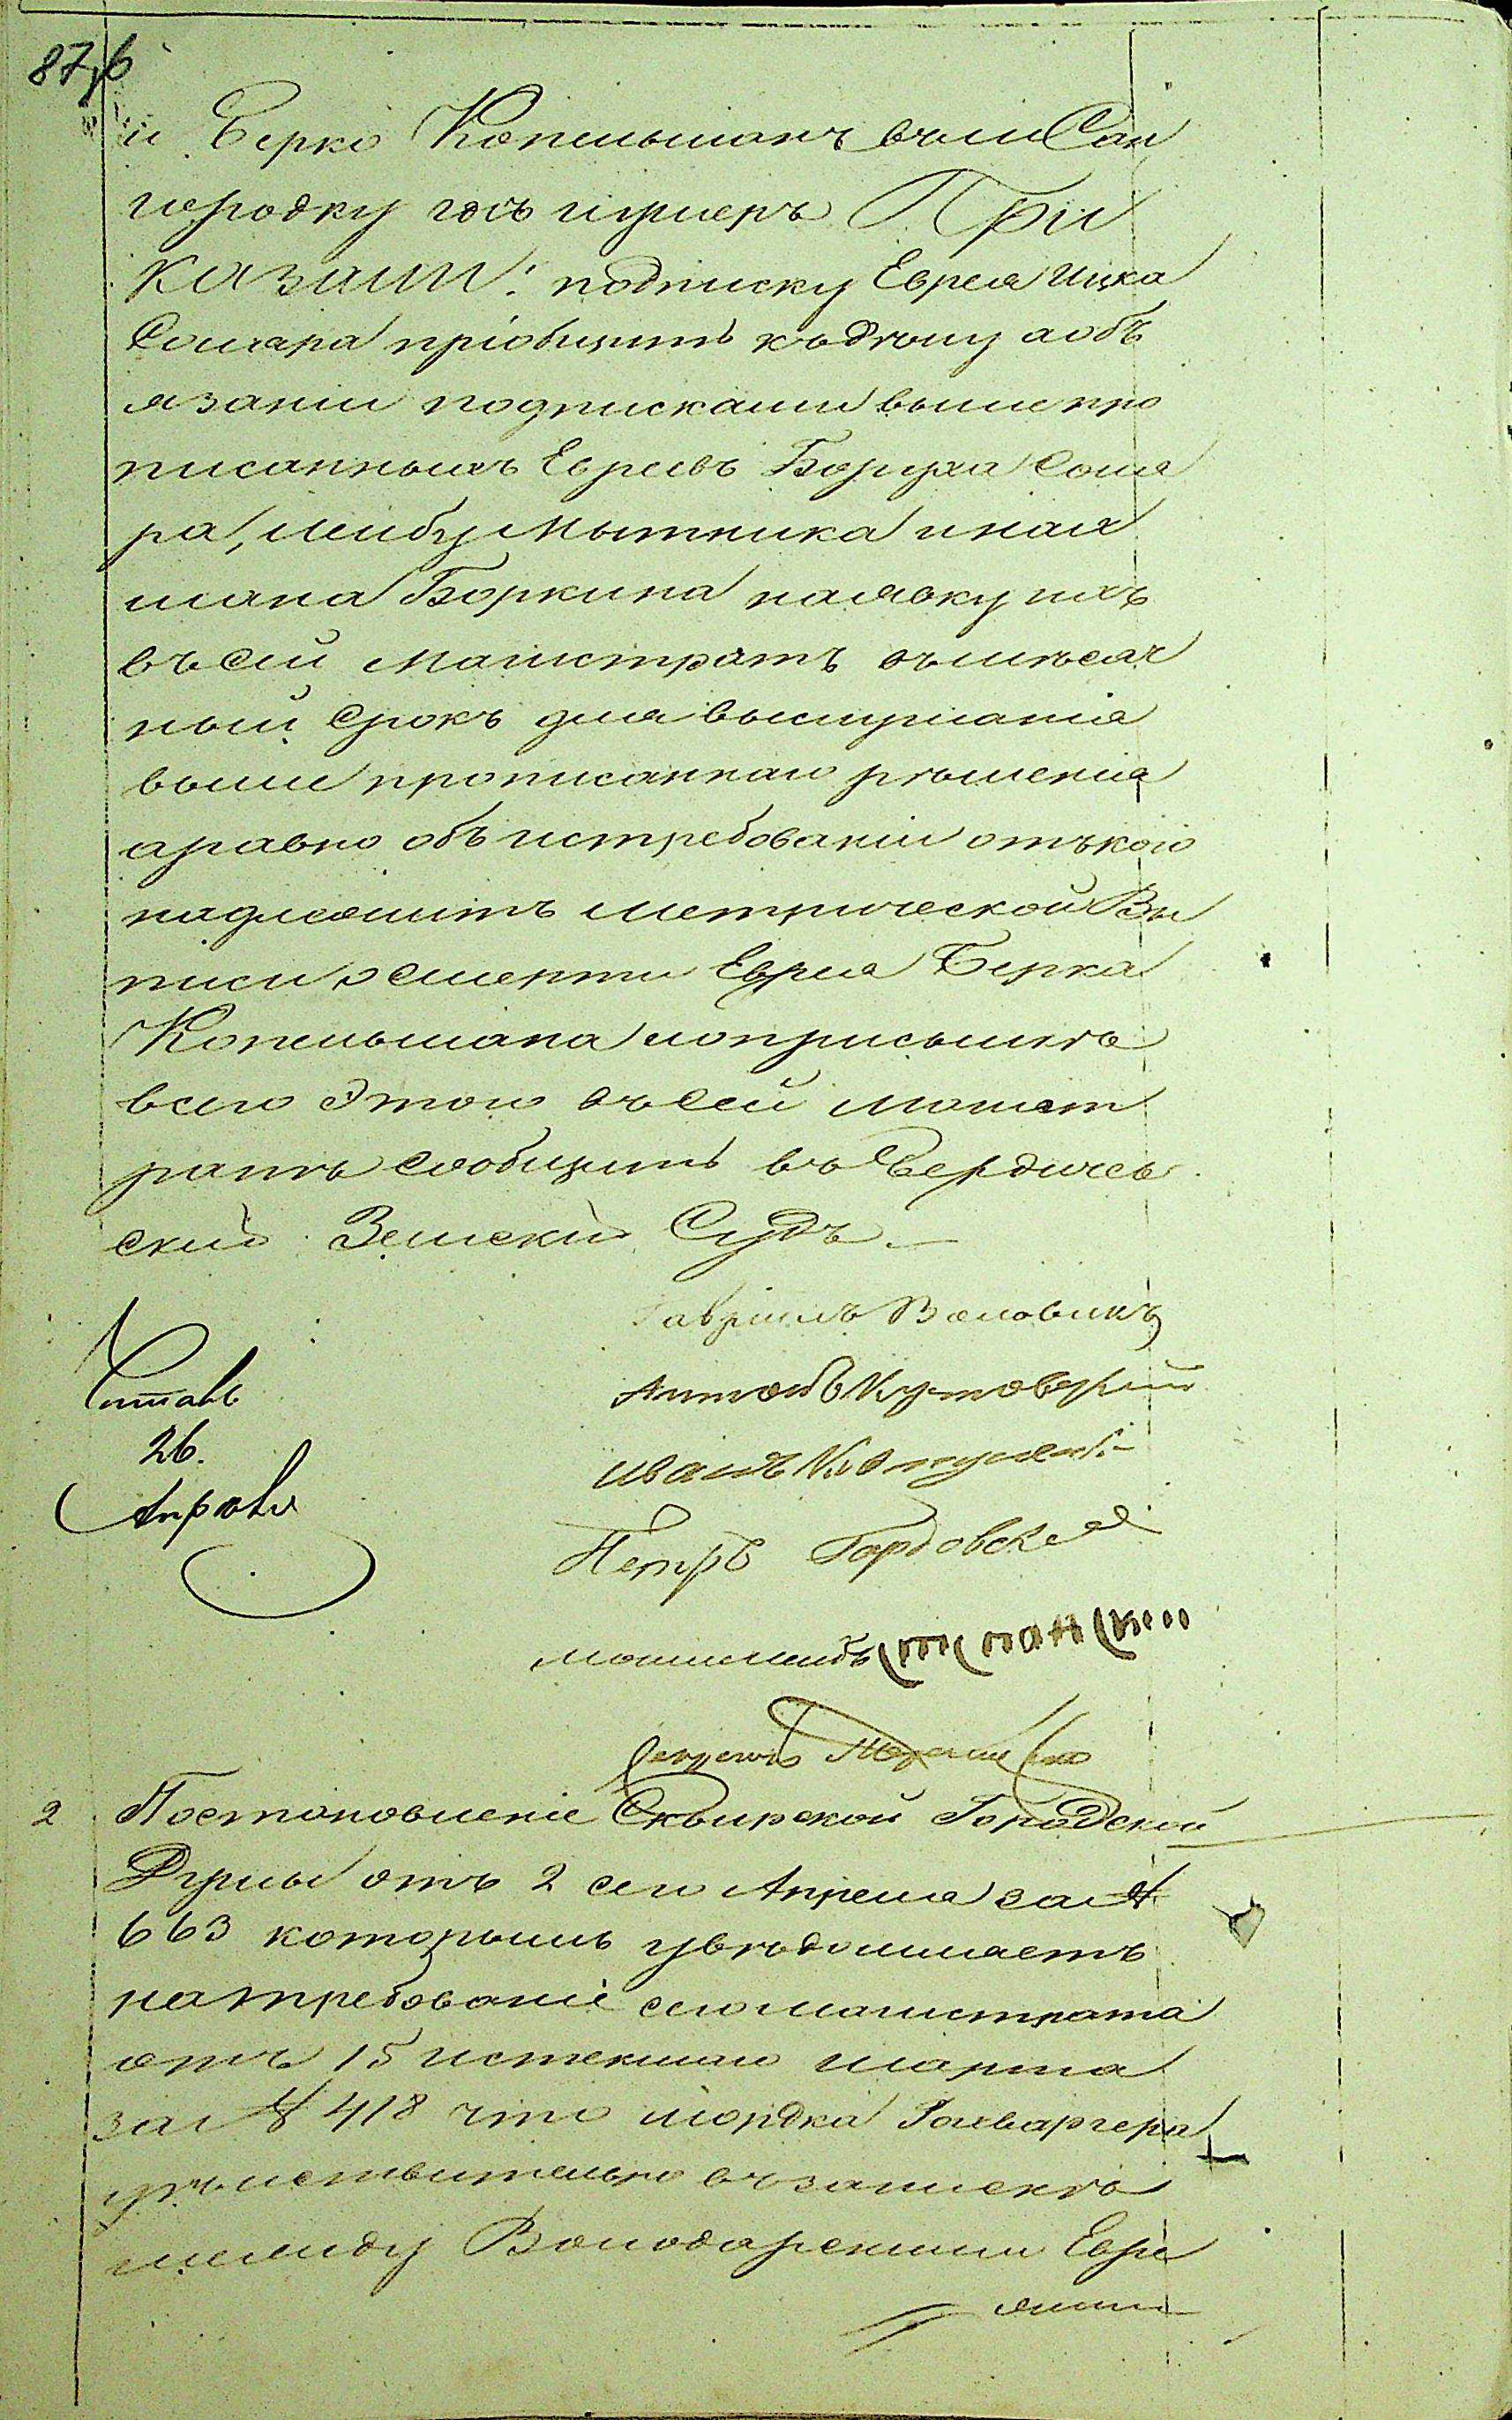 87,б
и Берко Копельманъ въ м Сам
городку гдѣ и умеръ При
казали: подписку Еврея Ицка
Сомара пріобщить къ дѣлу а объ
язаніи подписками выше про
писанныхъ Евреевъ Боруха Сома
ра, Лейбу Мытника и
мана Боркина на явку ихъ
въ сей Магистратъ въ мѣсяч
ный срокъ для выслушанія
выше прописаннаго рѣшенія
а равно объ истребованіи отъ кого
надлежитъ метрической Вы
писи о смерти Еврея Берка
Копельмана и о присылкѣ
всего этого въ сей Магист
ратъ сообщить въ Бердичев
скій Земскій Судъ. —
Гавріилъ Воловикъ
Антонъ Кутовскій
Иванъ
Петръ Гордовскій
Читалъ
26.
Апрѣля
Секретарь
2 Постановленіе Сквирской Городской
Думы отъ 2 сего Апреля за №
663 которымъ увѣдомляетъ
на требованіе сего магистрата
отъ 15 истекшаго марта
за № 418 что Мордка
дѣйствительно въ запискѣ
между Володарскими Евре
ями